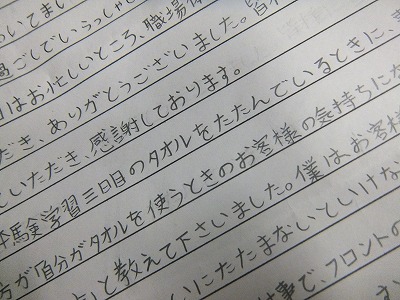 いてまい
過ごしでいらっしゃ
日はお忙しいところ、職場体
だき、ありがとうございました。皆
ていただき、感謝しております。
体験学習三日目のタオルをたたんでいるときに、
方が「自分がタオルを使うときのお客様の気持ちにな
と教えて下さいました。僕はお客様
いにたたまないといけな
事で、フロントの